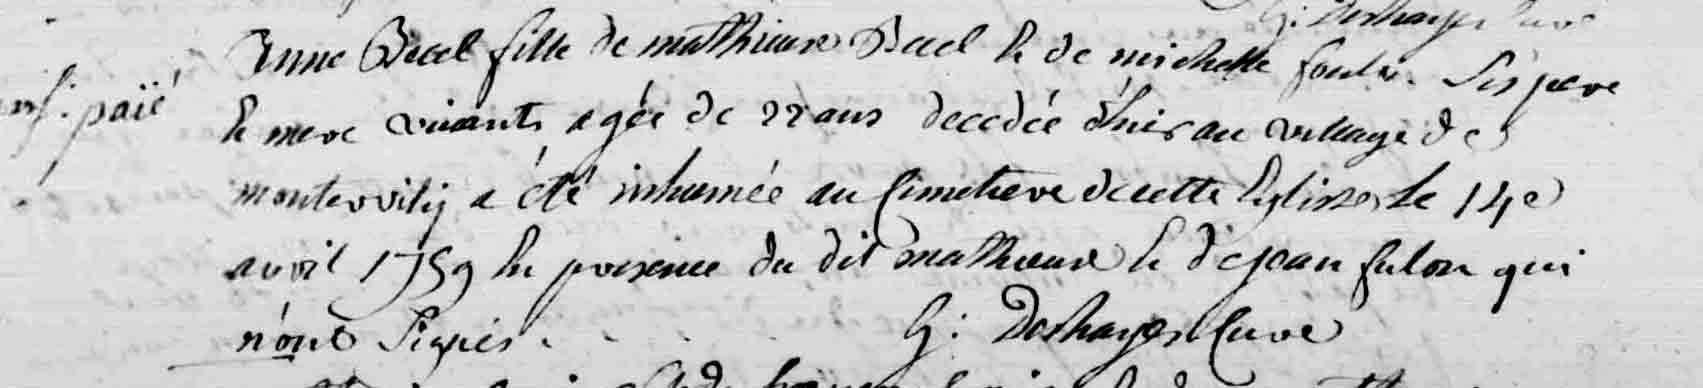 G: Deshayes Curé
Anne Becel fille de mathieux Becel & de michelle foulon. Ses pere
payé
& mere vivants agée de 22 ans decedée d'hier au village de
a été inhumée au Cimetiere de cette Eglise, le 14e
avril 1759 En presence du dit mathieux & de jean fulon qui
n'ont Signés. . . . G: Deshayes Curé